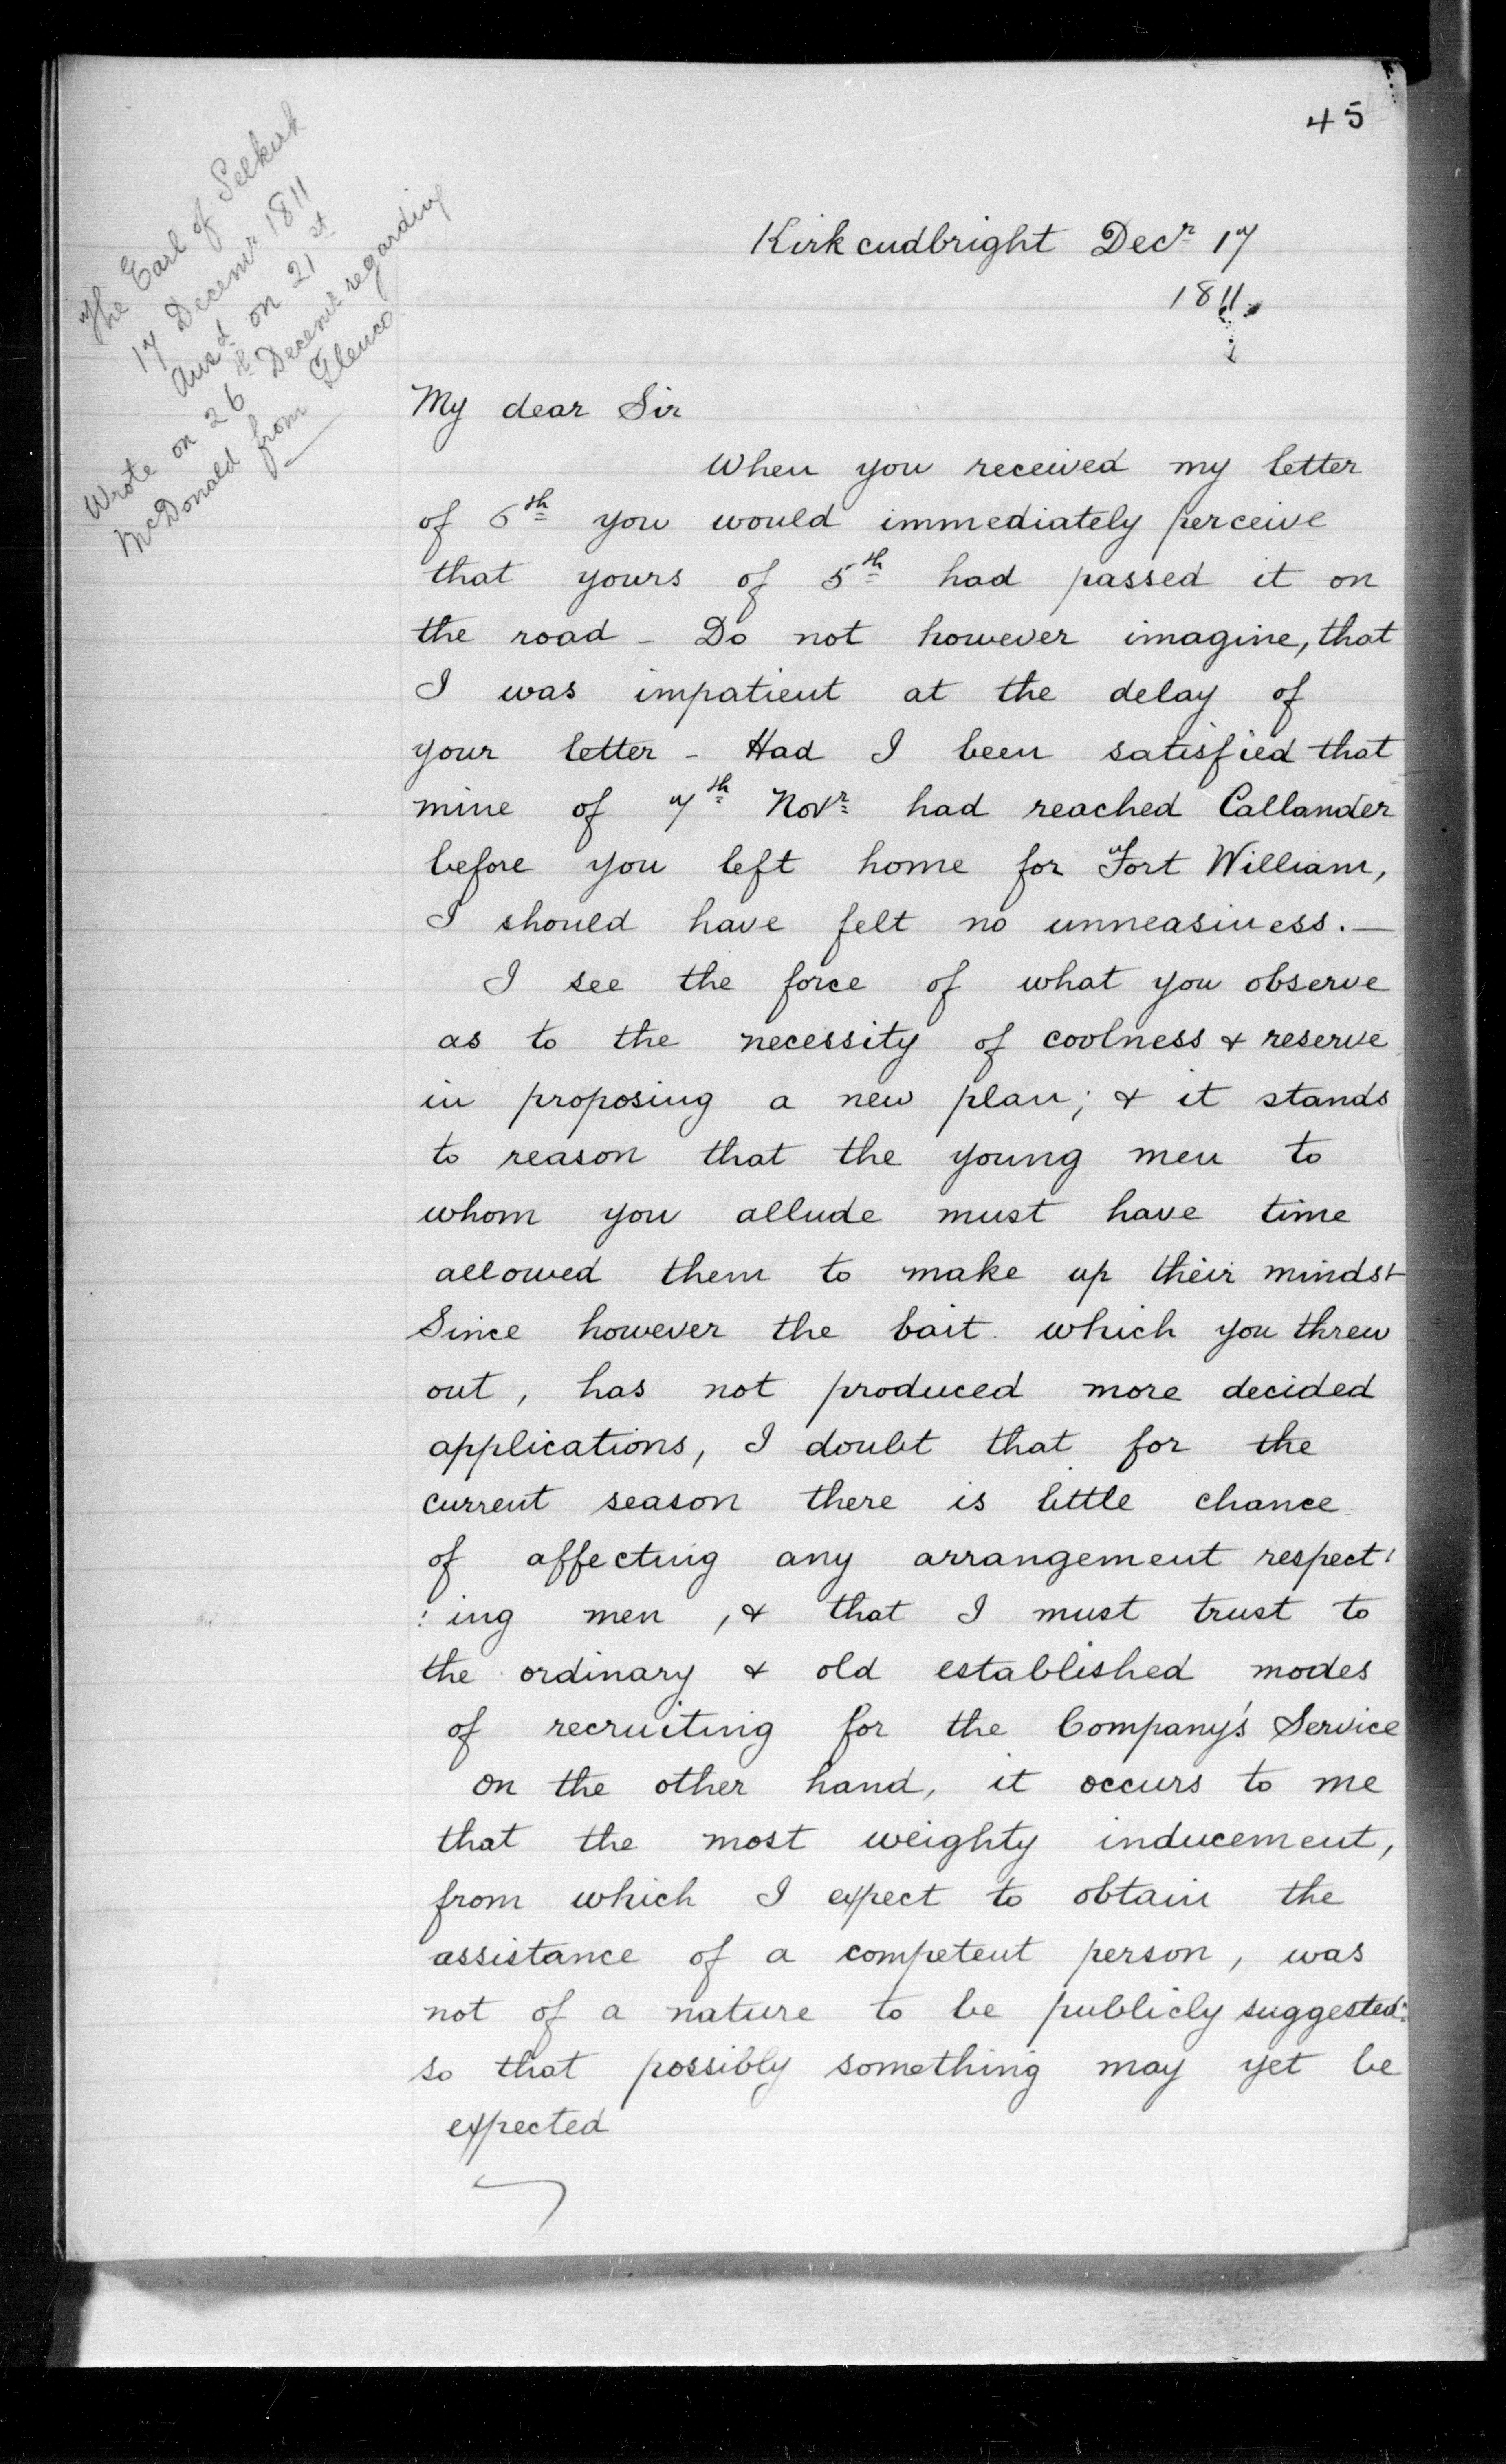 45
The Earl of Selkirk
17 Decemr 1811
Ansd on 21st
Wrote on 26th Decemr regarding
McDonald from Glenco
Kirkcudbright Decr 17
1811.
My dear Sir
When you received my letter
of 6th you would immediately perceive
that yours of 5th had passed it on
the road - Do not however imagine, that
I was impatient at the delay of
your letter - Had I been satisfied that
mine of 7th Novr had reached Callander
before you left home for Fort William,
I should have felt no unneasiness. —
I see the force of what you observe
as to the necessity of coolness & reserve
in proposing a new plan; & it stands
to reason that the young men to
whom you allude must have time
allowed them to make up their minds -
Since however the bait which you threw
out, has not produced more decided
applications, I doubt that for the
current season there is little chance
of affecting any arrangement respect:
:ing men, & that I must trust to
the ordinary & old established modes
of recruiting for the Company's Service
on the other hand, it occurs to me
that the most weighty inducement,
from which I expect to obtain the
assistance of a competent person, was
not of a nature to be publicly suggested:
so that possibly something may yet be
expected